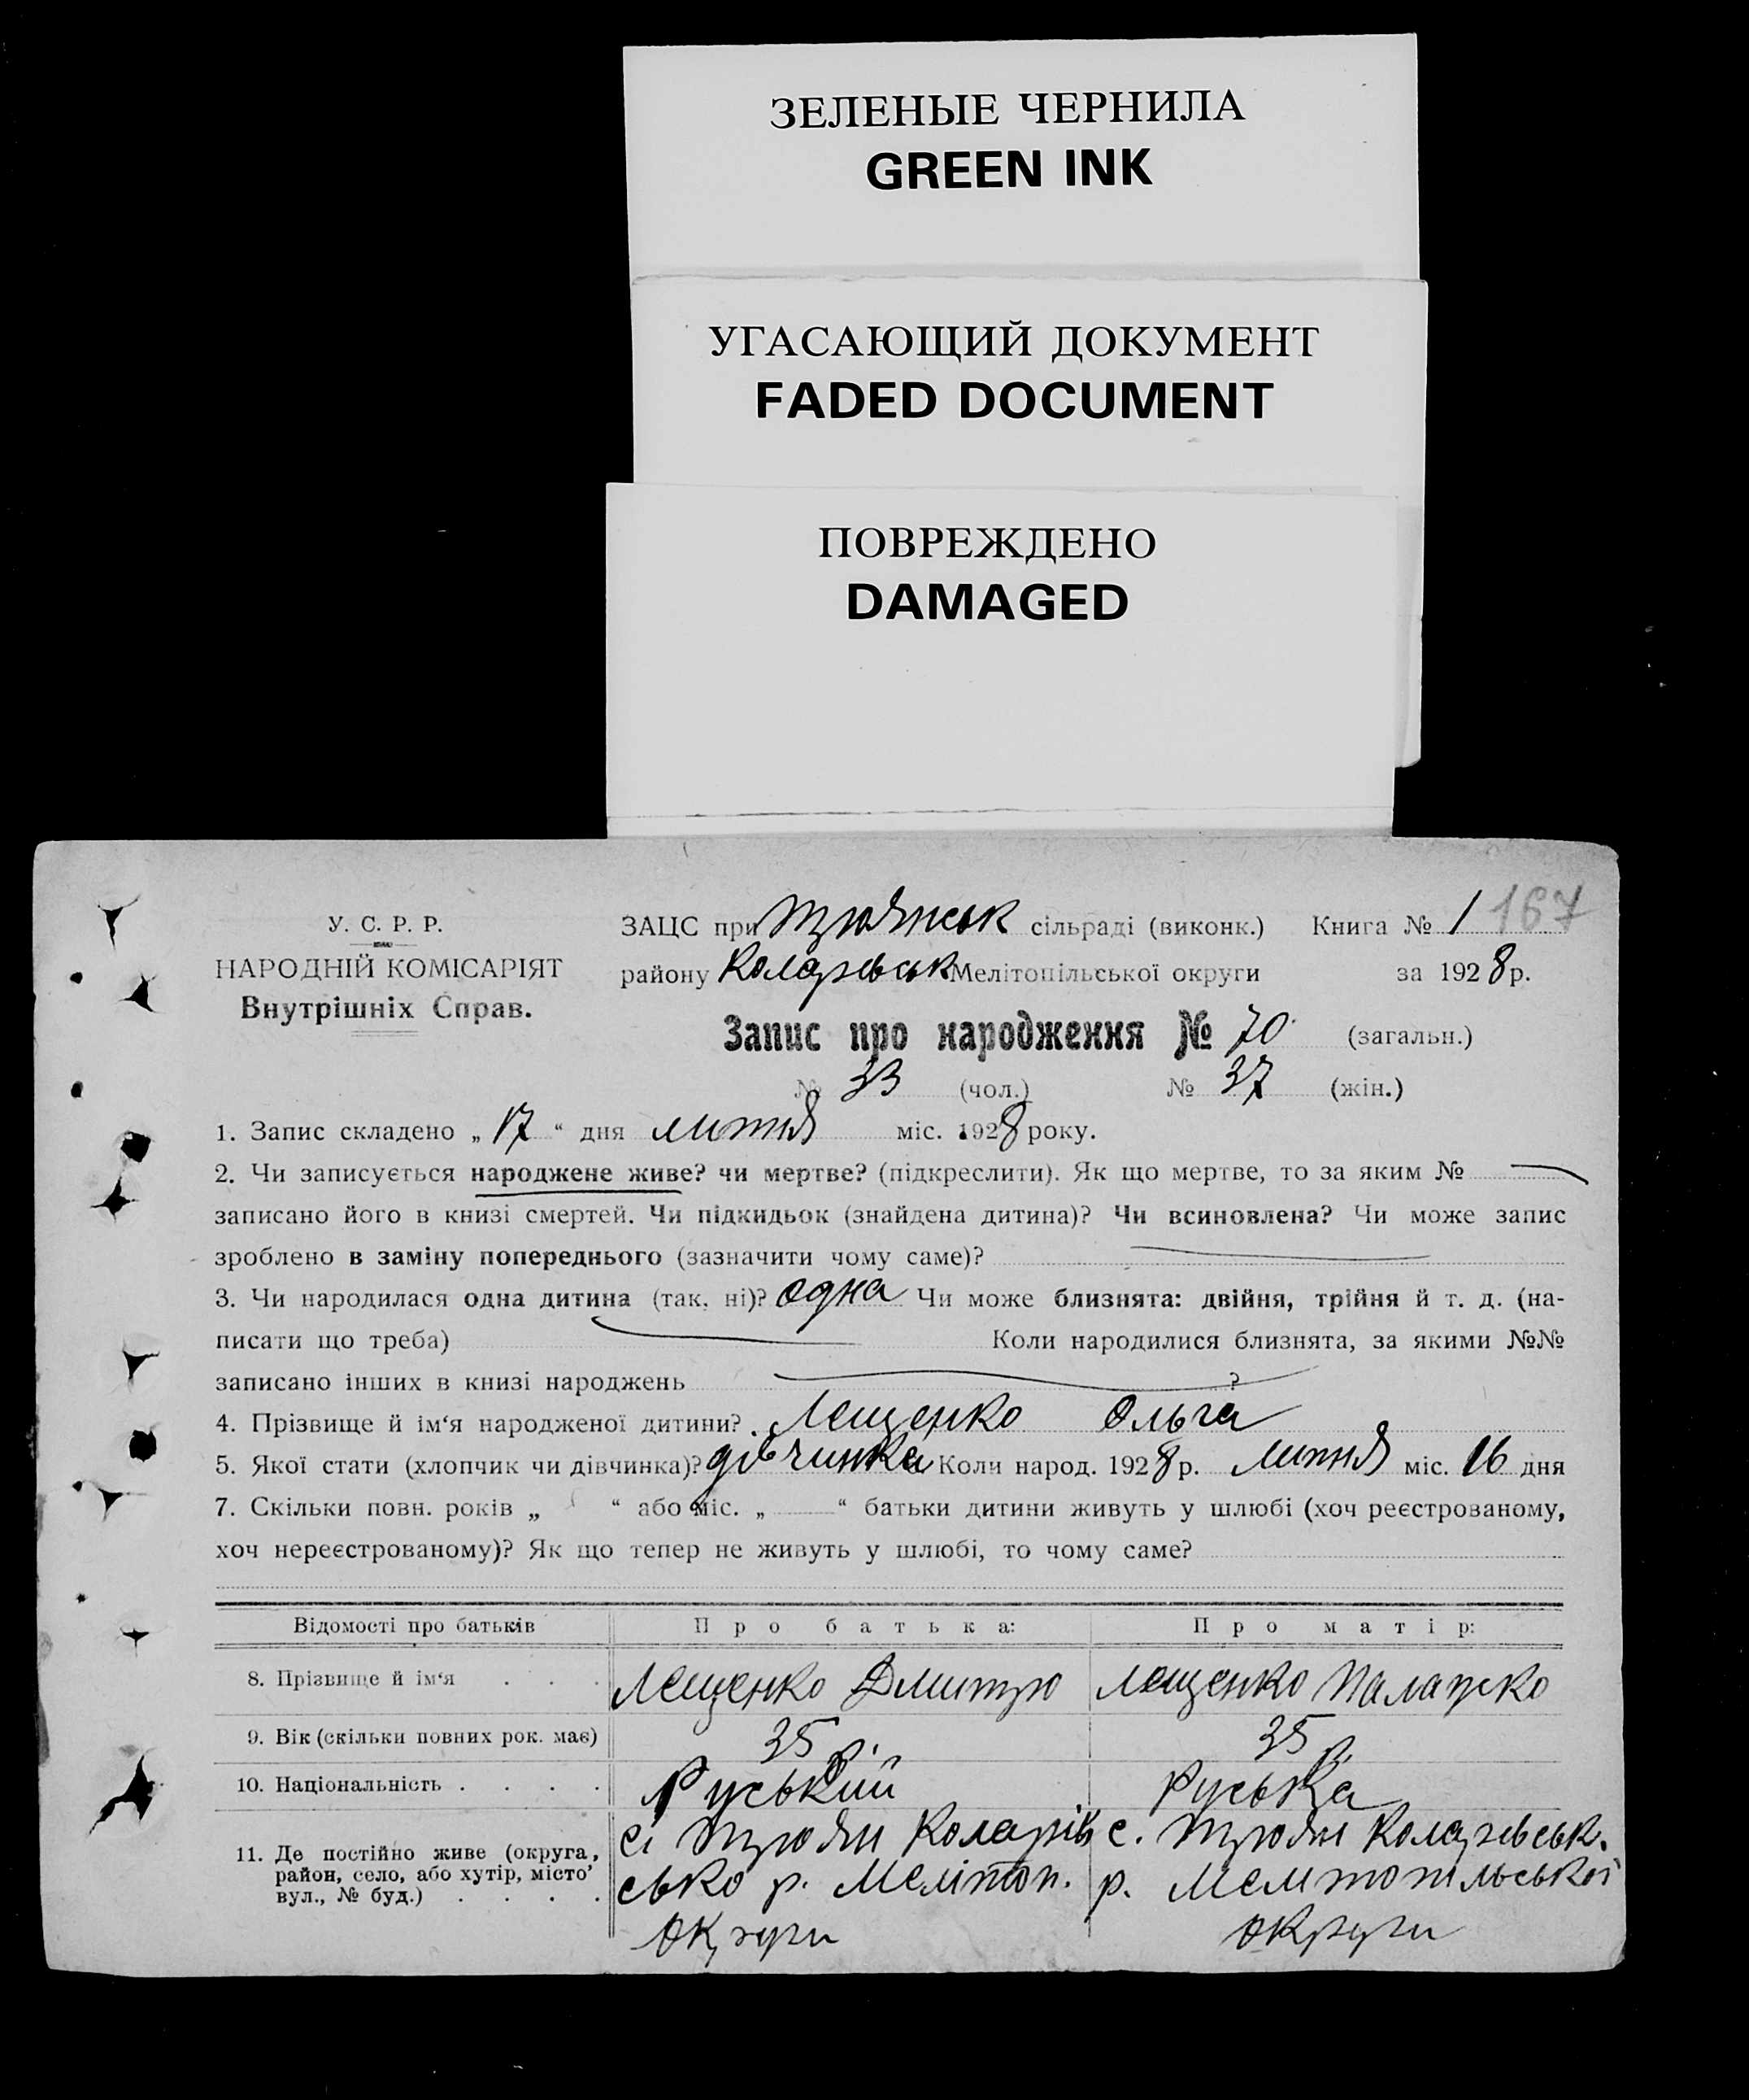 ЗЕЛЕНЫЕ ЧЕРНИЛА
GREEN INK
УГАСАЮЩИЙ ДОКУМЕНТ
FADED DOCUMENT
ПОВРЕЖДЕНО
DAMAGED
У. С. Р. Р.
НАРОДНІЙ КОМІСАРІЯТ
Внутрішніх Справ.
ЗАЦС при Троянськ сільраді (виконк.) Книга № 1 167
району Коларівськ Мелітопільської округи за 1928 р.
Запис про народження № 70 (загальн.)
№ 33 (чол.) № 37 (жін.)
1. Запис складено „ 17 “ дня липня міс. 1928 року.
2. Чи записується народжене живе? чи мертве? (підкреслити). Як що мертве, то за яким №
записано його в книзі смертей. Чи підкидьок (знайдена дитина)? Чи всиновлена? Чи може запис
зроблено в заміну попереднього (зазначити чому саме)?
3. Чи народилася одна дитина (так, ні)? одна Чи може близнята: двійня, трійня й т. д. (на-
писати що треба) Коли народилися близнята, за якими №№
записано інших в книзі народжень ?
4. Прізвище й ім‘я народженої дитини? Лещенко Ольга
5. Якої стати (хлопчик чи дівчинка)? дівчинка Коли народ. 1928 р. липня міс. 16 дня
7. Скільки повн. років „ “ або міс. „ “ батьки дитини живуть у шлюбі (хоч реєстрованому,
хоч нереєстрованому)? Як що тепер не живуть у шлюбі, то чому саме?
Відомості про батьків Про батька: Про матір:
8. Прізвище й ім‘я . . . Лещенко Дмитро Лещенко Палажко
9. Вік (скільки повних рок. має) 35 р. 35 р.
10. Національність . . . . Руський Руська
11. Де постійно живе (округа, район, село, або хутір, місто’ вул., № буд.) . . . .
с. Трояни Коларів
сько р. Мелітоп.
округи
с. Трояни Коларівськ.
р. Мелитопильської
округи